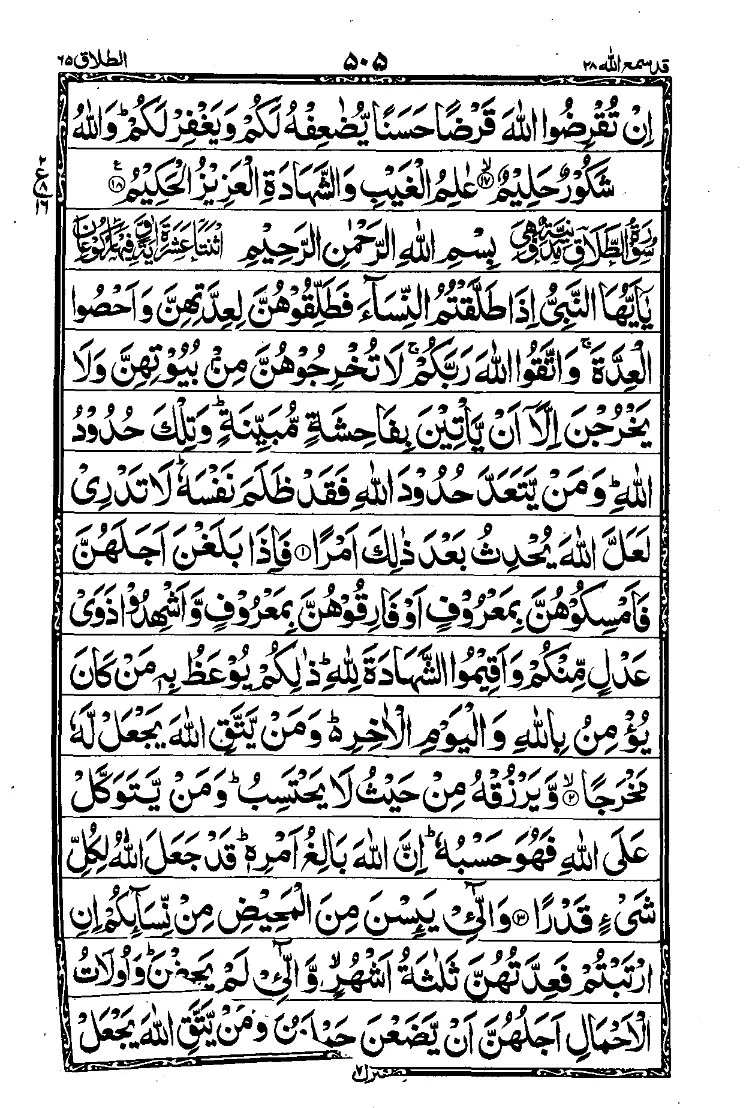 قد سمع الله ٢٨
٥٠٥
الطلاق ٦٥
اِنْ تُقْرِضُوا اللّٰهَ قَرْضًا حَسَنًا يُّضٰعِفْهُ لَكُمْ وَيَغْفِرْ لَكُمْ ؕ وَاللّٰهُ
شَكُوْرٌ حَلِيْمٌ ۙ﴿۱۷﴾ عٰلِمُ الْغَيْبِ وَالشَّهَادَةِ الْعَزِيْزُ الْحَكِيْمُ ﴿۱۸﴾ ع
٢ ع ٨ ١٦
سُوْرَةُ الطَّلَاقِ مَدَنِيَّةٌ وَّهِيَ بِسْمِ اللّٰهِ الرَّحْمٰنِ الرَّحِيْمِ اثْنَتَا عَشْرَةَ اٰيَةً وَّفِيْهَا رُكُوْعَانِ
يٰۤاَيُّهَا النَّبِيُّ اِذَا طَلَّقْتُمُ النِّسَآءَ فَطَلِّقُوْهُنَّ لِعِدَّتِهِنَّ وَاَحْصُوا
الْعِدَّةَ ۚ وَاتَّقُوا اللّٰهَ رَبَّكُمْ ۚ لَا تُخْرِجُوْهُنَّ مِنْۢ بُيُوْتِهِنَّ وَلَا
يَخْرُجْنَ اِلَّاۤ اَنْ يَّاْتِيْنَ بِفَاحِشَةٍ مُّبَيِّنَةٍ ؕ وَتِلْكَ حُدُوْدُ
اللّٰهِ ؕ وَمَنْ يَّتَعَدَّ حُدُوْدَ اللّٰهِ فَقَدْ ظَلَمَ نَفْسَهٗ ؕ لَا تَدْرِىْ
لَعَلَّ اللّٰهَ يُحْدِثُ بَعْدَ ذٰلِكَ اَمْرًا ﴿۱﴾ فَاِذَا بَلَغْنَ اَجَلَهُنَّ
فَاَمْسِكُوْهُنَّ بِمَعْرُوْفٍ اَوْ فَارِقُوْهُنَّ بِمَعْرُوْفٍ وَّاَشْهِدُوْا ذَوَىْ
عَدْلٍ مِّنْكُمْ وَاَقِيْمُوا الشَّهَادَةَ لِلّٰهِ ؕ ذٰلِكُمْ يُوْعَظُ بِهٖ مَنْ كَانَ
يُؤْمِنُ بِاللّٰهِ وَالْيَوْمِ الْاٰخِرِ ؕ۬ وَمَنْ يَّتَّقِ اللّٰهَ يَجْعَلْ لَّهٗ
مَخْرَجًا ۙ﴿۲﴾ وَّيَرْزُقْهُ مِنْ حَيْثُ لَا يَحْتَسِبُ ؕ وَمَنْ يَّتَوَكَّلْ
عَلَى اللّٰهِ فَهُوَ حَسْبُهٗ ؕ اِنَّ اللّٰهَ بَالِغُ اَمْرِهٖ ؕ قَدْ جَعَلَ اللّٰهُ لِكُلِّ
شَىْءٍ قَدْرًا ﴿۳﴾ وَالّٰٓـِٔىْ يَئِسْنَ مِنَ الْمَحِيْضِ مِنْ نِّسَآئِكُمْ اِنِ
ارْتَبْتُمْ فَعِدَّتُهُنَّ ثَلٰثَةُ اَشْهُرٍ ۙ وَّالّٰٓـِٔىْ لَمْ يَحِضْنَ ؕ وَاُولَاتُ
الْاَحْمَالِ اَجَلُهُنَّ اَنْ يَّضَعْنَ حَمْلَهُنَّ ؕ وَمَنْ يَّتَّقِ اللّٰهَ يَجْعَلْ
منزل ٧